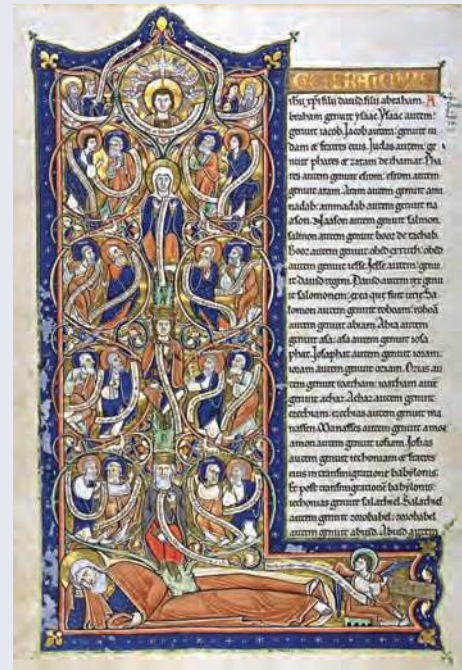 GENERATIONIS
ihu xpi filii dauid filii abraham. A
braham genuit ysaac. Ysaac autem
genuit iacob. Jacob autem genuit iu
dam et fratres eius. Judas autem ge
nuit phares et zaram de thamar. Pha
res autem genuit esrom. esrom autem
genuit aram. Aram autem genuit ami
nadab. aminadab autem genuit na
ason. Naason autem genuit salmon.
salmon autem genuit booz de rachab.
Booz autem genuit obed ex ruth. obed
autem genuit iesse. Jesse autem genu
it dauid regem. Dauid autem rex genu
it salomonem. ex ea que fuit urie. Sa
lomon autem genuit roboam. roboa
autem genuit abiam. Abia autem
genuit asa. asa autem genuit iosa
phat. Josaphat autem genuit ioram.
ioram autem genuit oziam. Ozias au
tem genuit ioatham. ioatham aute
genuit achaz. Achaz autem genuit
ezechiam. ezechias autem genuit ma
nassen. Manasses autem genuit amon
amon autem genuit iosiam. Josias
autem genuit iechoniam et fratres
eius in transmigratione babylonis.
Et post transmigratione babylonis.
iechonias genuit salathiel. Salathiel
autem genuit zorobabel. zorobabel
autem genuit abiud. Abiud autem